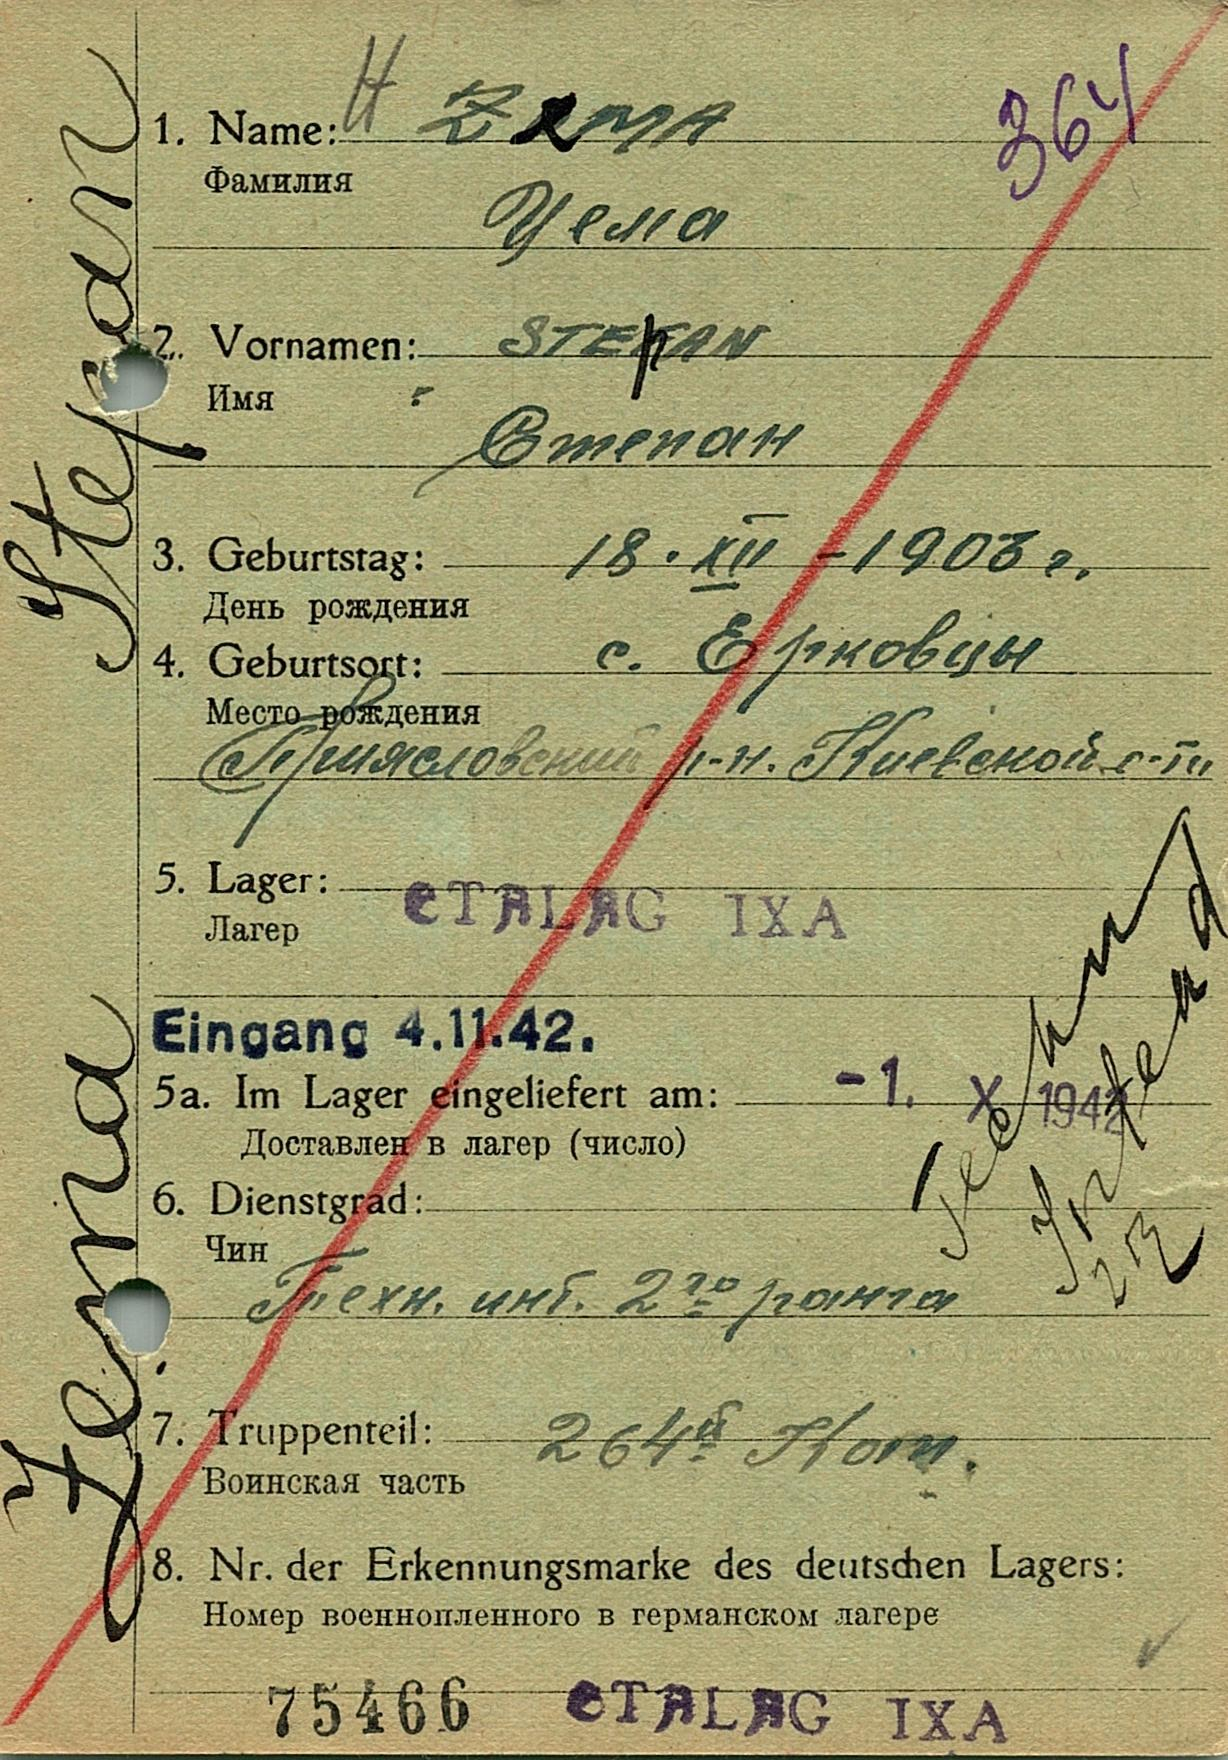 364
1. Name: H ZEMA
Фамилия
Цема
2. Vornamen: STEpAN
Имя
Степан
3. Geburtstag: 18. XII - 1903 г.
День рождения
4. Geburtsort: с. Ерковцы
Место рождения
р-н. Киевской
5. Lager: STALAG IXA
Лагер
Eingang 4.11.42.
5a. Im Lager eingeliefert am: -1. X 1942
Доставлен в лагер (число)
6. Dienstgrad:
Чин
Техн. инт. 2го ранга
7. Truppenteil: 264й
Воинская часть
8. Nr. der Erkennungsmarke des deutschen Lagers:
Номер военнопленного в германском лагере
75466 STALAG IXA
Zema Stepan